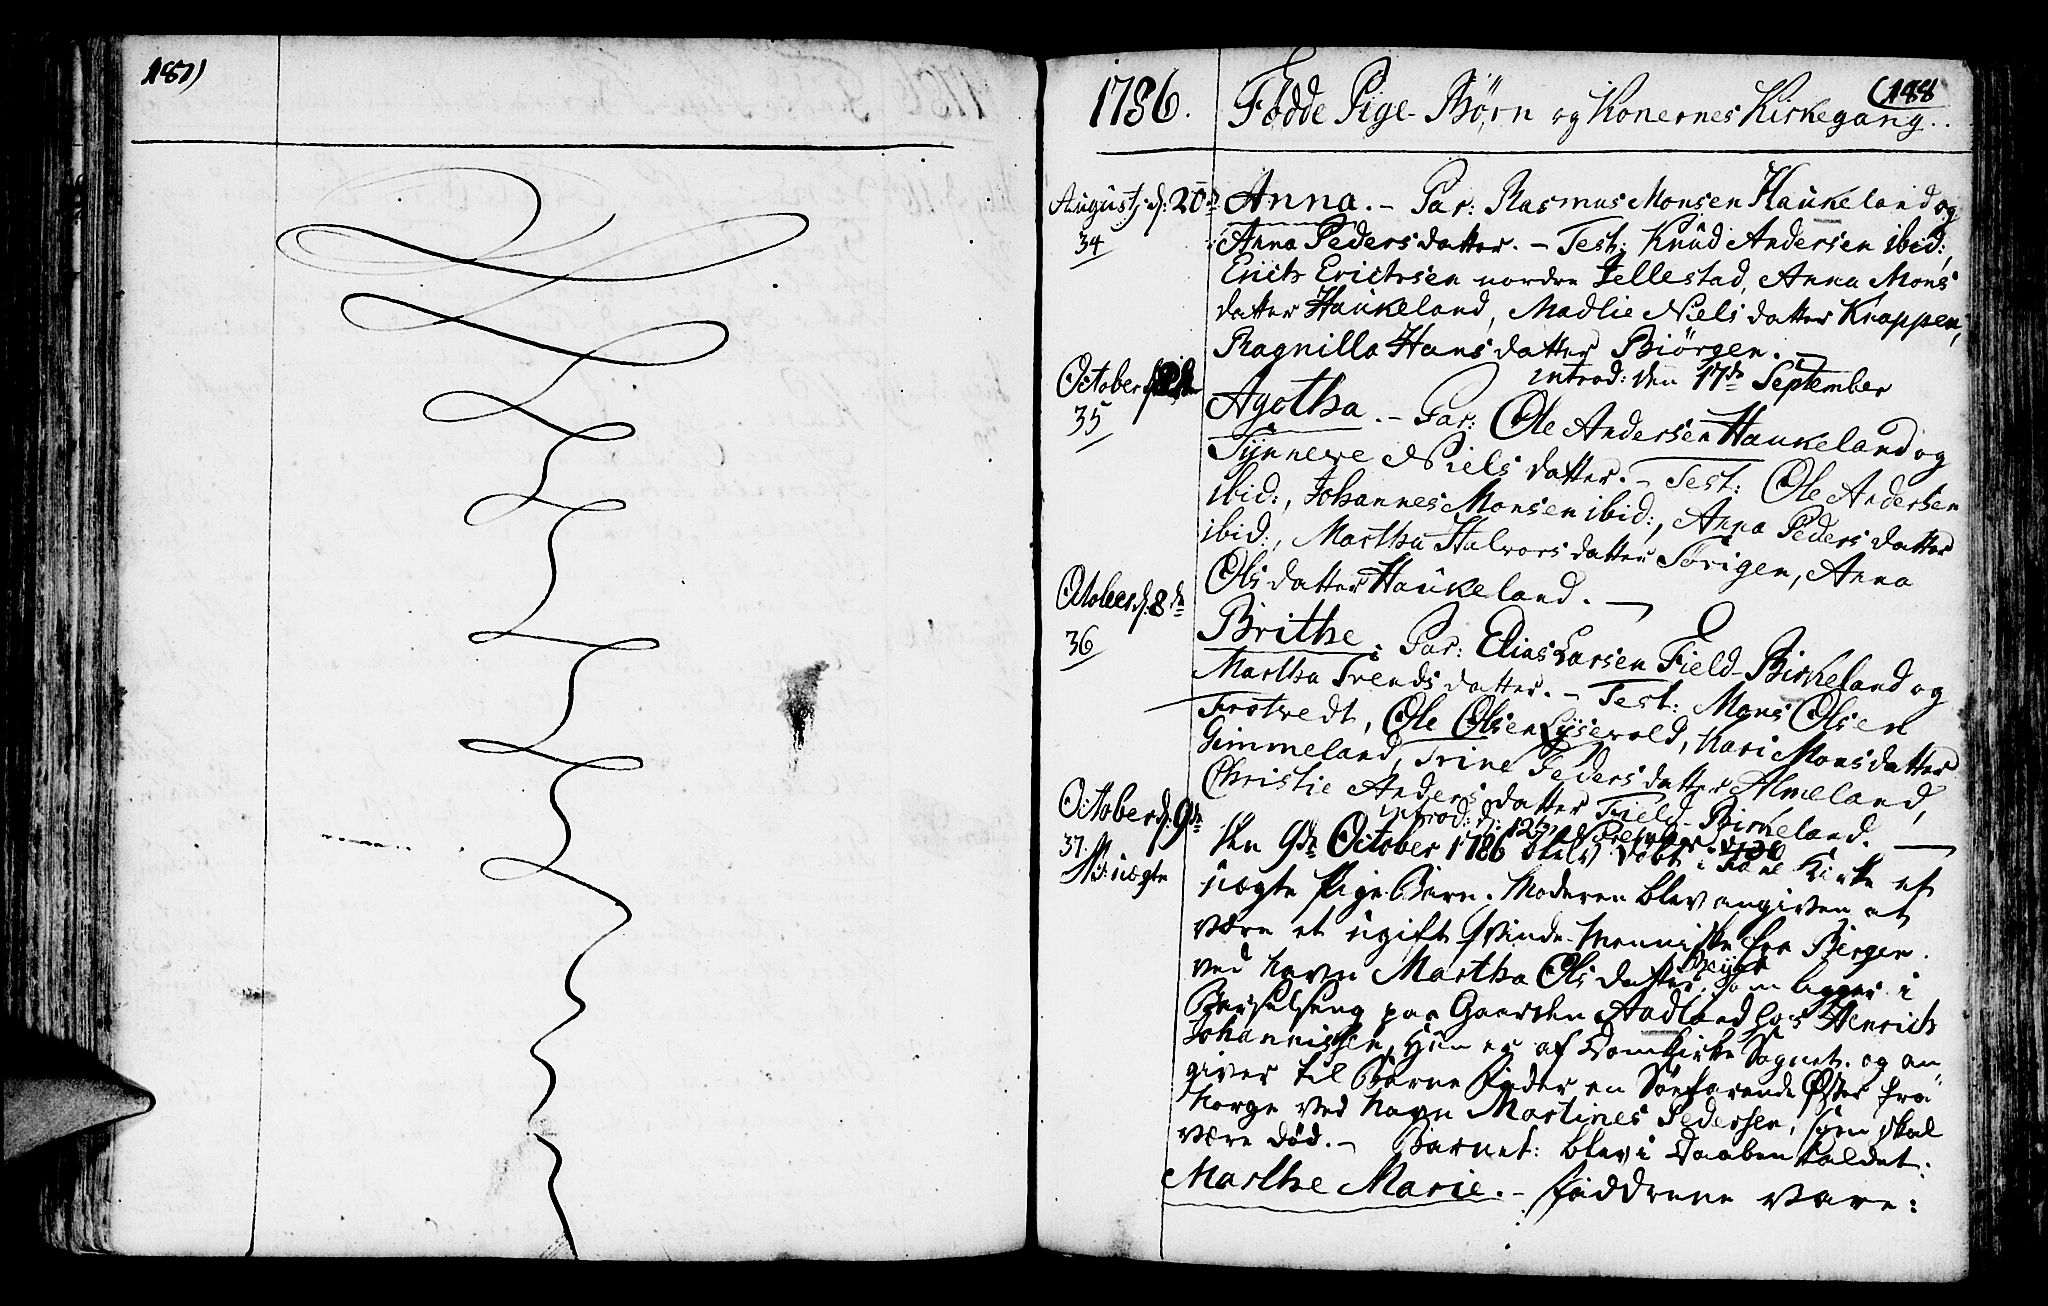 187)
1786. Fødde Pige-Børn og Konernes Kirkegang.. (188
Augustj d: 20de Anna. - Par: Rasmus Monsen Haukeland og
34 Anna Pedersdatter. - Test: Knud Andersen ibid:,
Erich Erichsen nordre Jellestad, Anna Mons
datter Haukeland, Madlie Niels datter Knappen,
Ragnilla Hans datter Biørgen. -
introd: den 17de September
October
35 Agotha. - Par: Ole Andersen Haukeland og
Synneve Niels datter. - Test: Ole Andersen
ibid:, Johannes Monsen ibid:, Anna Peders datter
ibid:, Martha Halvors datter Sørigen, Anna
Ols datter Haukeland. -
October d. 8de
36 Brithe. Par: Elias Larsen Field-Birkeland og
Martha Trends datter. - Test: Mons Olsen
Trotvedt, Ole Olsen Lysevold, Kari Monsdatter
Himmeland, Trine Peders datter Almeland,
Christie Anders datter Field-Birkeland. -
introd: d: 12te November
October d. 9de
37. Den 9de October 1786 blev døbt i Fane Kirke et
N: uægte uægte Pige-Barn. Moderen blev angiven at
være et ugift Qvinde-Menniske fra Bergen
ved Navn Martha Ols datter Beyer som ligger i
Barselseng paa Gaarden Aadland hos Henrich
Johannissen, Hun er af Domkirke Sognet. og an
giver til Barne Fader en Søefarende fra
Norge ved Navn Martines Pedersen, som skal
være død. - Barnet: blev i Daaben kaldet:
Marthe Marie. - Faddrene vare: